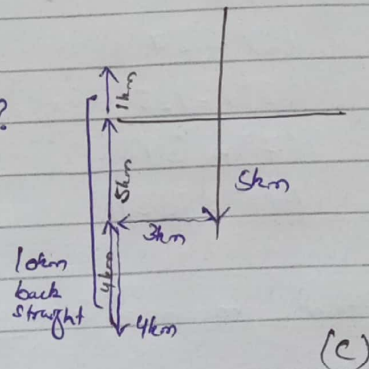 ?
1km
5km
5km
3km
4km
10km
back
straight
4km
(C)